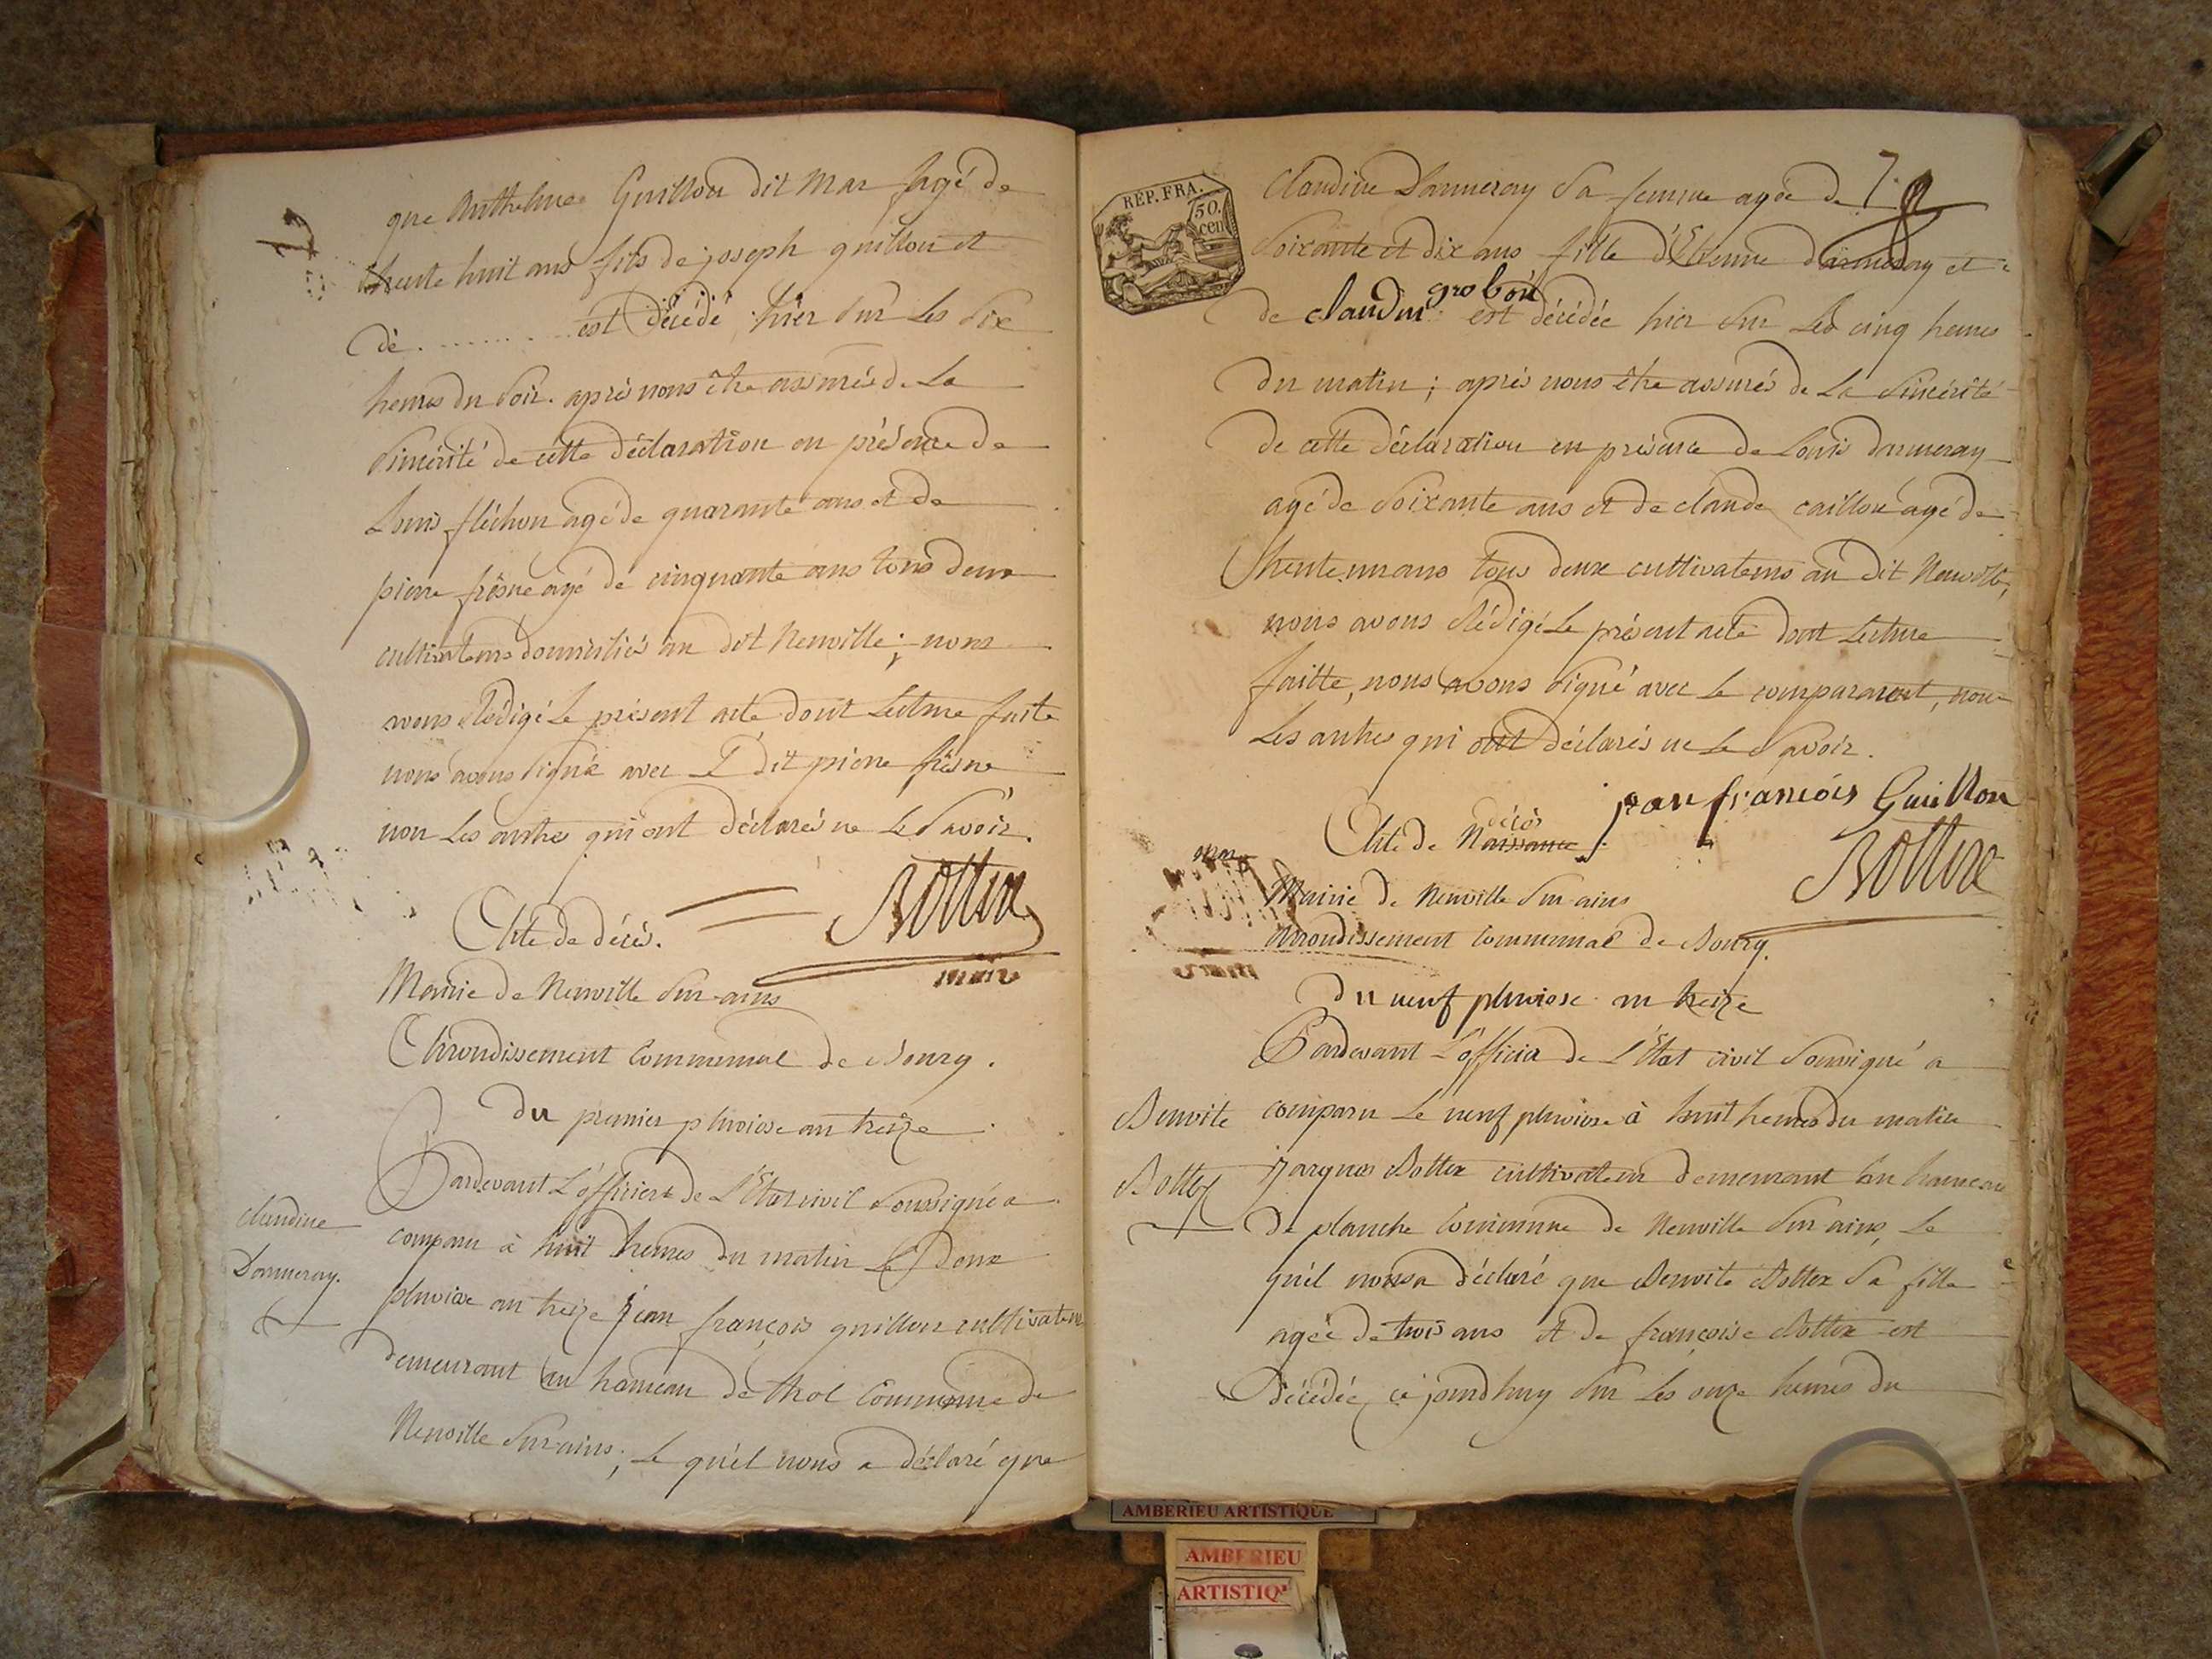 que Anthelme Guillon dit Mar agé de
trente huit ans fils de joseph guillon et
de .......... est décédé hier sur les six
heures du soir. après nous être assurés de La
sincérité de cette déclaration en présence de
Louis fléchon agé de quarante ans et de
pierre frêsne agé de cinquante ans tous deux
cultivateurs domiciliés au dit Neuville; nous
avons Rédigé Le présent acte dont Lecture faite
nous avons signé avec Le dit pierre frêsne
non Les autres qui ont déclarés ne Le Savoir.
Bottex
maire
Acte de décès.
Mairie de Neuville Sur ains
Arrondissement Communal de Bourg.
du premier pluviose an treize
Pardevant L'officier de L'Etat civil soussigné a
claudine
Darmeray.
comparu à huit heures du matin Le Deux
pluviose an treize jean françois guillon cultivateur
demeurant au hameau de thol Commune de
Neuville Sur ains; Le quel nous a déclaré que
REP. FRA.
50.
cen
7.
Claudine Darmeray Sa femme agée de
Soixante et dix ans fille d'Etienne darmeray et
de claudine grobon est décédée hier Sur Les cinq heures
du matin; après nous être assurés de La Sincérité
de cette déclaration en présence de Louis darmeray
agé de Soixante ans et de claude caillon agé de
trente un ans tous deux cultivateurs au dit Neuville,
nous avons Rédigé Le présent acte dont Lecture
faitte, nous avons signé avec Le comparant, non
Les autres qui ont déclarés ne Le Savoir.
jean françois Guillon
Bottex
décès
Acte de Naissance.
Mairie de Neuville Sur ains
Arrondissement Communal de Bourg.
du neuf pluviose an treize
Pardevant L'officier de L'Etat civil Soussigné a
Benoite
Bottex
comparu Le neuf pluviose à huit heures du matin
Jacques Bottex cultivateur demeurant au hameau
de planche Commune de Neuville Sur ains, Le
quel nous a déclaré que Benoite Bottex Sa fille
agée de trois ans et de françoise Bottex est
Décédée ce jourdhuy Sur Les onze heures du
AMBERIEU ARTISTIQUE
AMBERIEU
ARTISTIQ